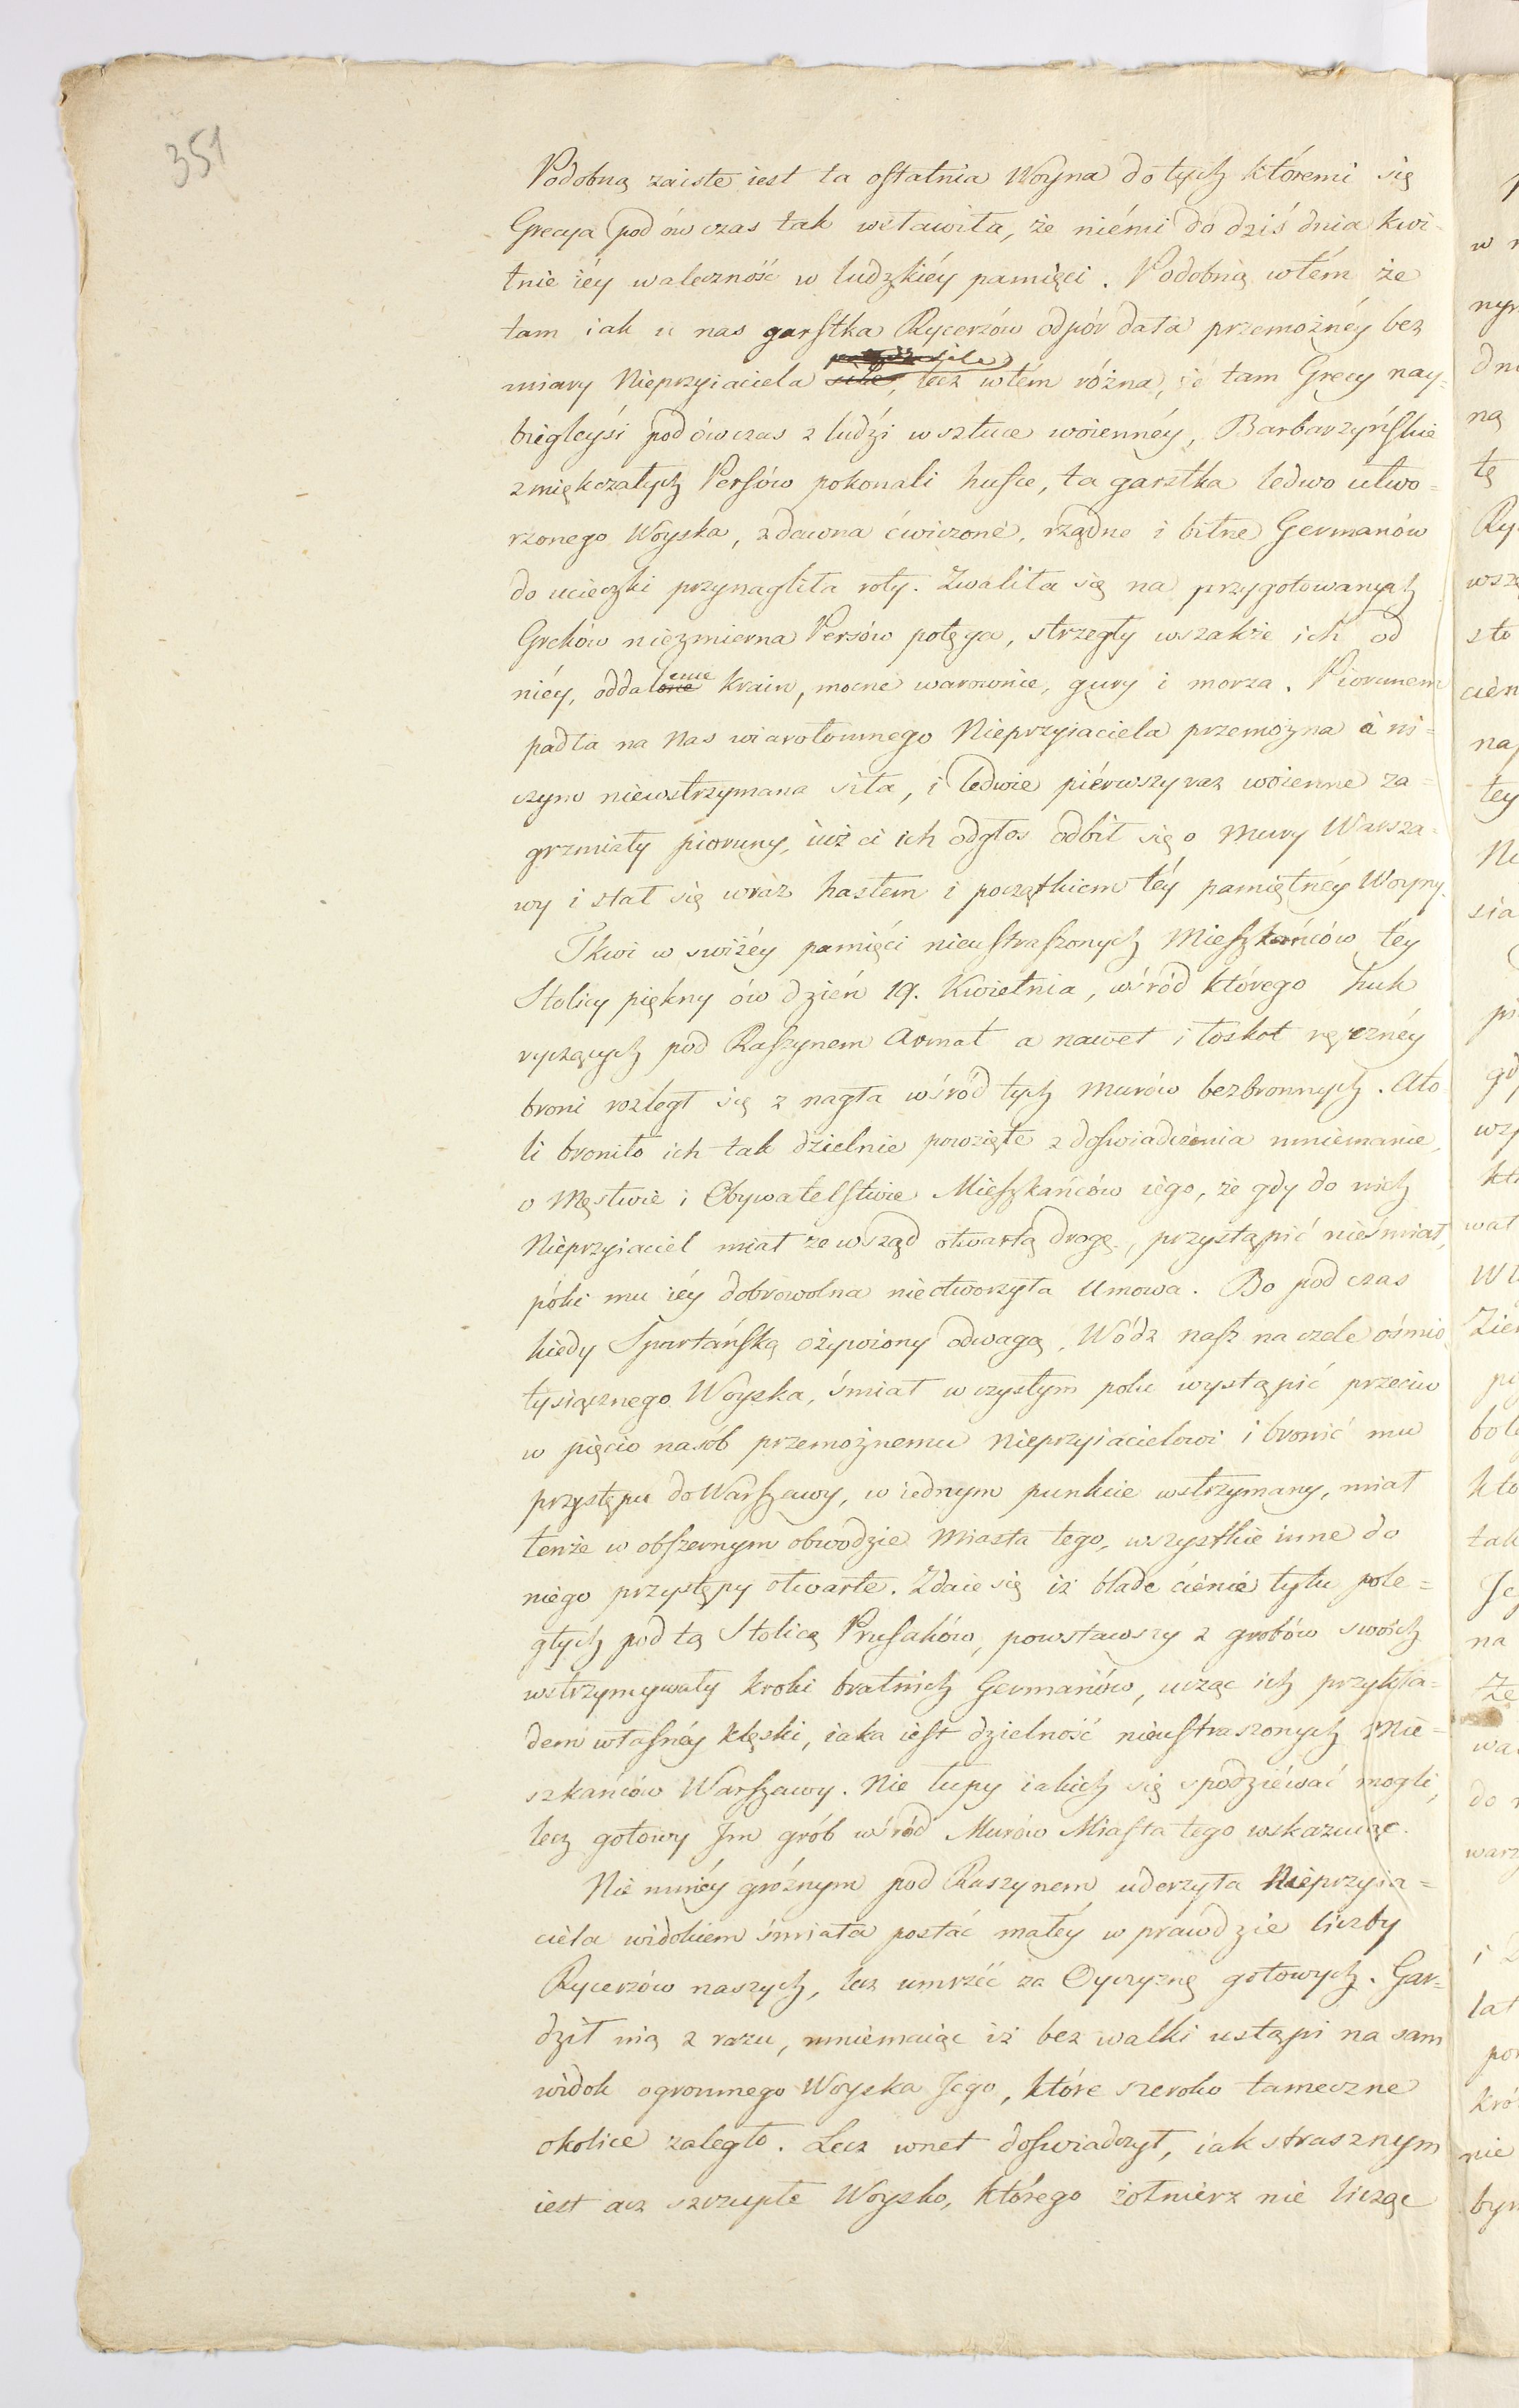 351
Podobną zaiste iest ta ostatnia Woyna do tych któremi się
Grecya pod ów czas tak wsławiła, że niémi do dziś dnia kwi-
tnie iéy waleczność w ludzkiéy pamięci. Podobną wtém że
tam iak u nas garstka Rycerzów odpór dała przemożnéy bez
miary Nieprzyiaciela sile, lecz wtém różna, iż tam Grecy nay=
biegleysi podówczas z ludźi w sztuce woienney, Barbarzyńskie
zmiękczałych Persów pokonali hufce, ta garstka ledwo utwo=
rzonego Woyska, zdawna ćwiczoné, rządne i bitne Germanów
do ucieczki przynagliła roty. Zwaliła się na przygotowanych
Greków niezmierna Persów potęga, strzegły wszakże ich od
niéy, oddalone krain, mocne warownie, góry i morza. Piorunem
padła na Nas wiarołomnego Nieprzyiaciela przemożna à ni=
czym niewstrzymana siła, i ledwie piérwszy raz woienne za=
grzmiały pioruny, iuż ci ich odgłos odbił się o Mury Warsza=
wy i stał się wraz hasłem i początkiem téy pamiętnéy Woyny.
Tkwi w swiżéy pamięci nieustraszonych Mieszkańców téy
Stolicy piękny ów dzień 19. Kwietnia, wśród którego huk
ryczących pod Raszynem Armat a nawet i łoskot ręcznéy
broni rozległ się z nagła wśród tych murów bezbronnych. Ato-
li broniło ich tak dzielnie powzięte z doświadczenia mniemanie
o Męstwie i Obywatelstwie Mieszkańców iego, że gdy do nich
Nieprzyiaciel miał ze wsząd otwartą drogę, przystąpić nieśmiał,
póki mu iéy dobrowolna nieotworzyła Umowa. Bo pod czas
kiedy Spartańską ożywiony odwagą, Wódz nasz na czele ośmio
tysiącznego Woyska, śmiał w czystym polu wystąpić przeciw
w pięcio nasób przemożnemu Nieprzyiacielowi i bronić mu
przystępu do Warszawy, w iednym punkcie wstrzymany, miał
tenże w obszernym obwodzie Miasta tego, wszystkie inne do
niego przystępy otwarte. Zdaie się iż blade ciénie tylu pole=
głych pod tą Stolicą Prusaków, powstawszy z grobów swoich
wstrzymywały kroki bratnich Germanów, ucząc ich przykła=
dem własnéy klęski, iaka iest dzielność nieustraszonych Mie=
szkańców Warszawy. Nie łupy iakich się spodziéwać mogli,
lecz gotowy Im grób wśród Murów Miasta tego wskazuiąc.
Nie mniéy groźnym pod Raszynem uderzyła Nieprzyia=
ciéla widokiem śmiała postać małéy w prawdzie liczby
Rycerzów naszych, lecz umrzéć za Oyczyznę gotowych. Gar=
dził nią z razu, mniemaiąc iż bez walki ustąpi na sam
widok ogromnego Woyska Jego, które szeroko tameczne
okolice zaległo. Lecz wnet doświadczył, iak strasznym
iest acz szczupłe Woysko, którego żołnierz nie licząc